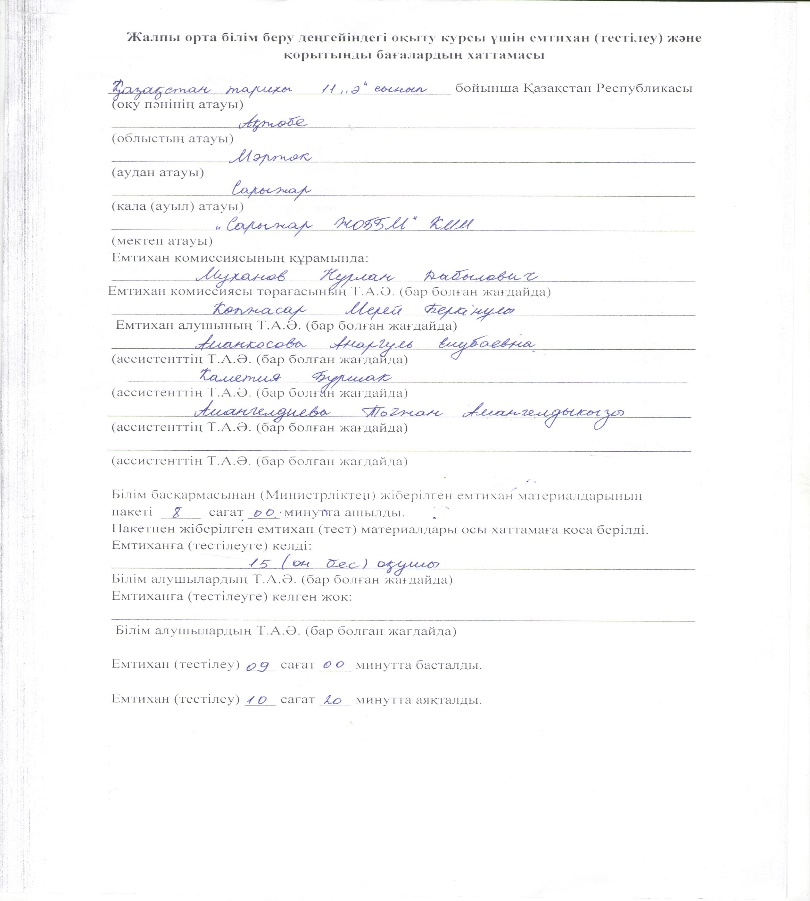 Жалпы орта білім беру деңгейіндегі оқыту курсы үшін емтихан (тестілеу) және
қорытынды бағалардың хаттамасы
Қазақстан тарихы 11 „ә“ сынып бойынша Қазақстан Республикасы
(оқу пәнінің атауы)
Ақтөбе
(облыстың атауы)
Мәртөк
(аудан атауы)
Сарыжар
(қала (ауыл) атауы)
„Сарыжар ЖОББМ“ КММ
(мектеп атауы)
Емтихан комиссиясының құрамында:
Муханов Нурлан Дабылович
Емтихан комиссиясы төрағасының Т.А.Ә. (бар болған жағдайда)
Қопжасар Мерей Берікұлы
Емтихан алушының Т.А.Ә. (бар болған жағдайда)
Аманкосова Анаргуль
(ассистенттің Т.А.Ә. (бар болған жағдайда)
Каметия Буршак
(ассистенттің Т.А.Ә. (бар болған жағдайда)
Амангелдиева Тоғжан Амангелдықызы
(ассистенттің Т.А.Ә. (бар болған жағдайда)
(ассистенттің Т.А.Ә. (бар болған жағдайда)
Білім басқармасынан (Министрліктен) жіберілген емтихан материалдарының
пакеті 8 сағат 00 минутта ашылды.
Пакетпен жіберілген емтихан (тест) материалдары осы хаттамаға қоса берілді.
Емтиханға (тестілеуге) келді:
15 (он бес) оқушы
Білім алушылардың Т.А.Ә. (бар болған жағдайда)
Емтиханға (тестілеуге) келген жоқ:
Білім алушылардың Т.А.Ә. (бар болған жағдайда)
Емтихан (тестілеу) 09 сағат 00 минутта басталды.
Емтихан (тестілеу) 10 сағат 20 минутта аяқталды.